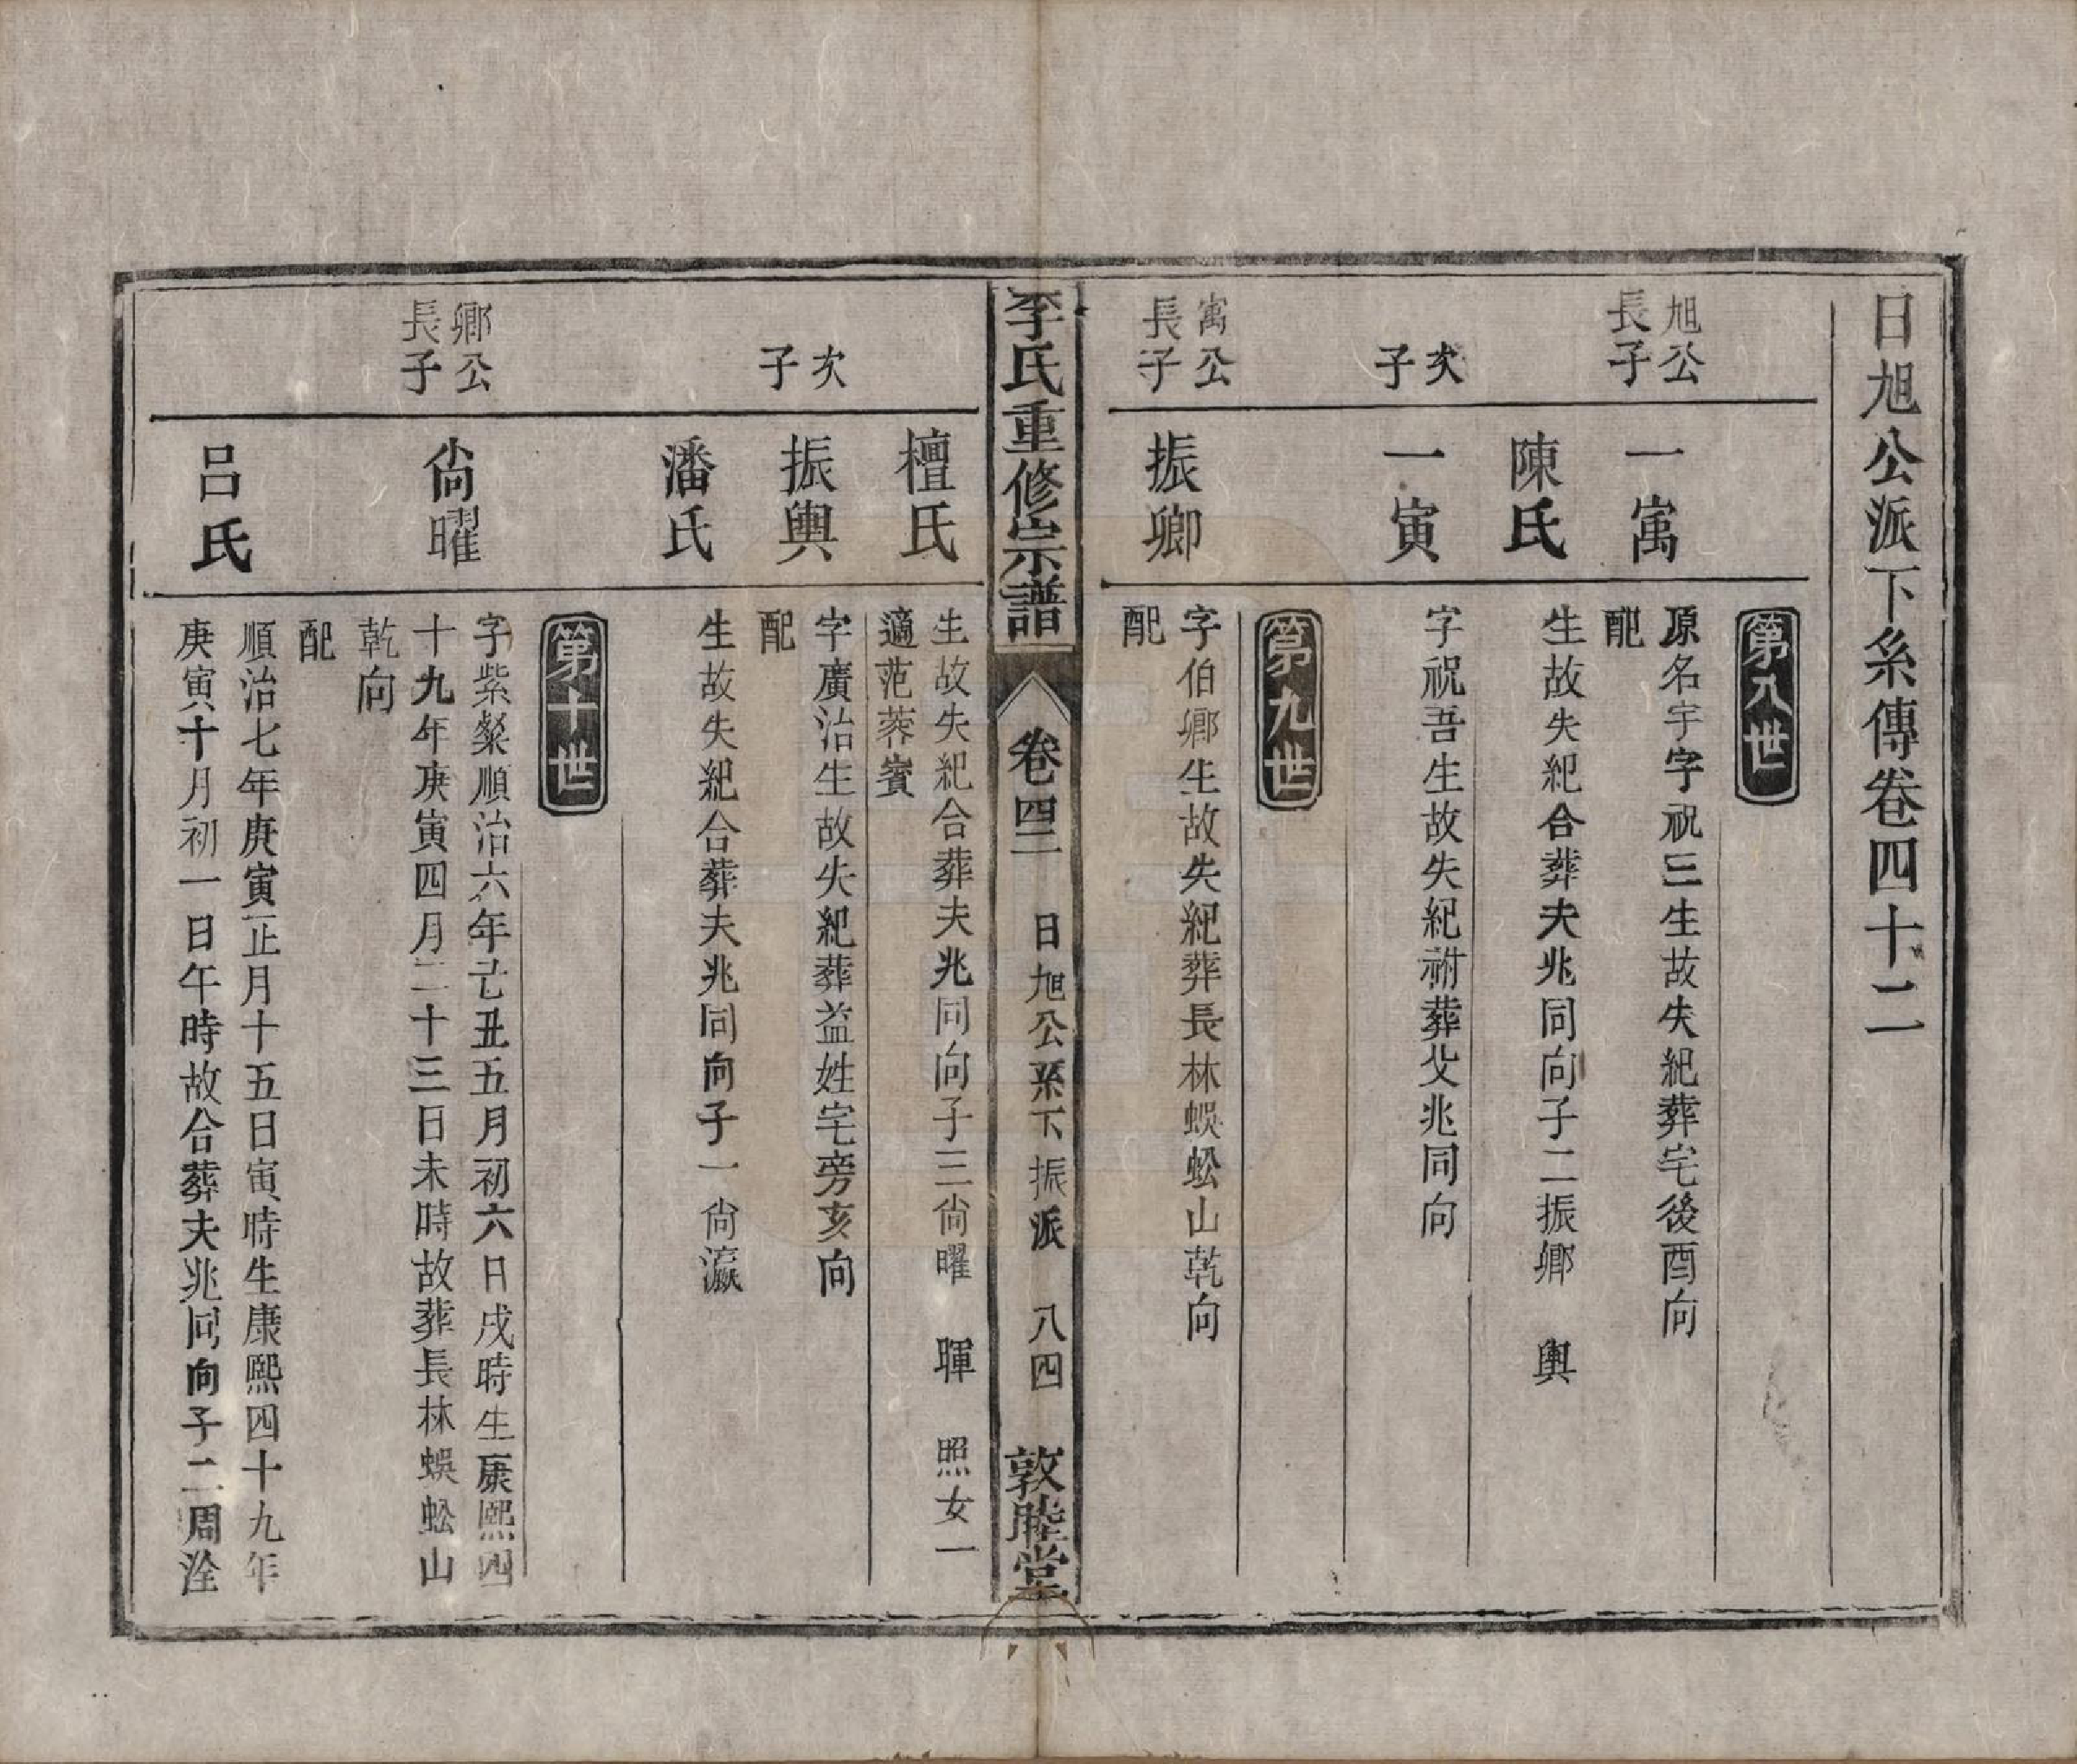 日旭公派下系傳卷四十二
第八世
旭公
長子
一寓
原名宇字祝三生故失紀葬宅後酉向
配
陳氏
生故失紀合葬夫兆同向子二振卿 輿
次
子
一寅
字祝吾生故失紀祔葬父兆同向
第九世
寓公
長子
振卿
字伯卿生故失紀葬長林蜈蚣山乾向
配
李氏重修宗譜
卷四二
日旭公系下振派
八四
敦睦堂
檀氏
生故失紀合葬夫兆同向子三尙曜 暉 照女一
適范蓉賓
次
子
振輿
字廣治生故失紀葬益姓宅旁亥向
配
潘氏
生故失紀合葬夫兆同向子一尙瀛
第十世
卿公
長子
尙曜
字紫粲順治六年己丑五月初六日戌時生康熙四
十九年庚寅四月二十三日未時故葬長林蜈蚣山
乾向
配
呂氏
順治七年庚寅正月十五日寅時生康熙四十九年
庚寅十月初一日午時故合葬夫兆同向子二周洤